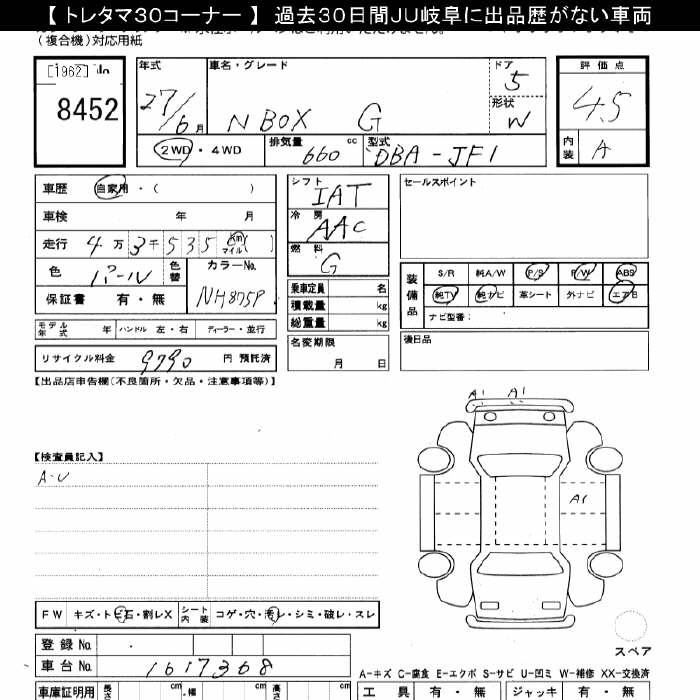 【 トレタマ30コーナー 】 過去30日間JU岐阜に出品歴がない車両
(複合機)対応用紙
[1962] No
8452
年式
27/6月
車名・グレード
N BOX G
ドア
5
形状
W
評価点
4.5
内装
A
2WD ・ 4WD
排気量 660 cc
型式 DBA-JF1
車歴 自家用・( )
車検 年 月
走行 4万3千535 km マイル( )
色 パール 色替
カラーNo. NH875P
保証書 有・無
シフト IAT
冷房 AAC
燃料 G
乗車定員 名
積載量 kg
総重量 kg
名変期限
月 日
モデル年式 年 ハンドル 左・右 ディーラー・並行
リサイクル料金 9790 円 預託済
セールスポイント
装備品
S/R 純A/W P/S P/W ABS
純TV 純ナビ 革シート 外ナビ エアB
ナビ型番:
後日品
【出品店申告欄(不良箇所・欠品・注意事項等)】
【検査員記入】
A-U
A1 A1
A1
スペア
FW キズ・トビ石・割レX シート内装 コゲ・穴・汚レ・シミ・破レ・スレ
登録 No.
車台 No. 1617368
A-キズ C-腐食 E-エクボ S-サビ U-凹ミ W-補修 XX-交換済
車庫証明用 長さ cm 幅 cm 高さ cm
工具 有・無 ジャッキ 有・無